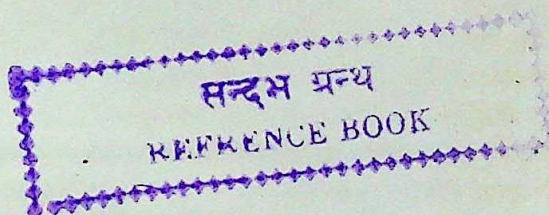 सन्दभ ग्रन्थ
REFRENCE BOOK